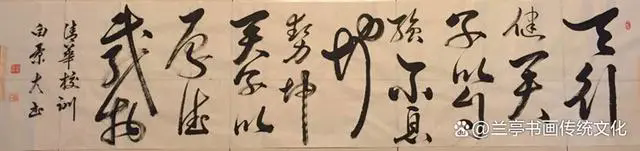 天行
健君
子以自
强不息
地
势坤
君子以
厚德
载物
清華校训
白大书
兰亭书画传统文化